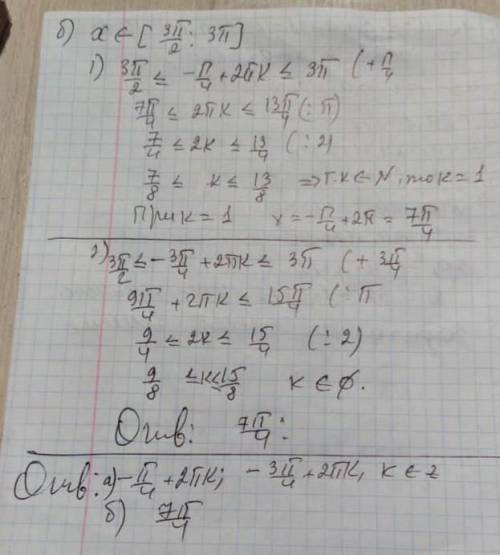 б) x ∈ [3π/2 ; 3π]
1) 3π/2 ≤ -π/4 + 2πk ≤ 3π (+ π/4
7π/4 ≤ 2πk ≤ 13π/4 (: π)
7/4 ≤ 2k ≤ 13/4 (: 2)
7/8 ≤ k ≤ 13/8 ⇒ т.к k ∈ N, то k = 1
При k = 1 x = -π/4 + 2π = 7π/4
2) 3π/2 ≤ -3π/4 + 2πk ≤ 3π (+ 3π/4
9π/4 + 2πk ≤ 15π/4 (: π
9/4 ≤ 2k ≤ 15/4 (: 2)
9/8 ≤ k ≤ 15/8 k ∈ ∅.
Отв: 7π/4:
Отв: а) -π/4 + 2πk; -3π/4 + 2πk, k ∈ z
б) 7π/4